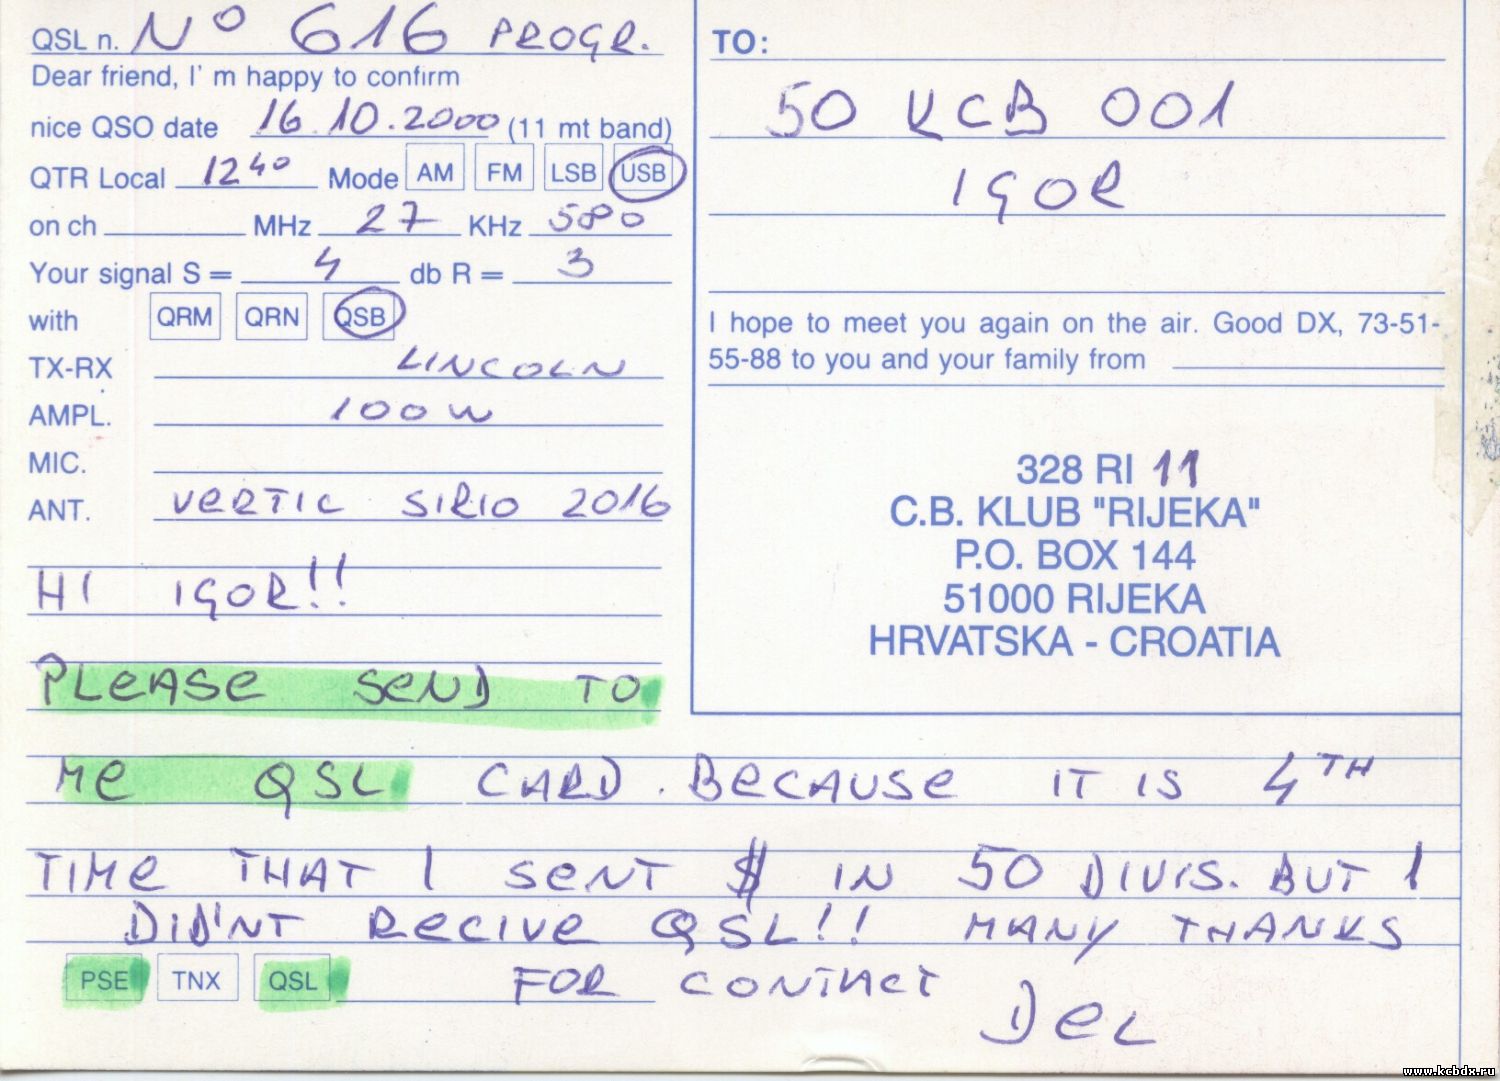 QSL n. No 616 PROGR.
Dear friend, I' m happy to confirm
nice QSO date 16.10.2000 (11 mt band)
QTR Local 12 40 Mode AM FM LSB USB
on ch MHz 27 KHz 580
Your signal S = 4 db R = 3
with QRM QRN QSB
TX-RX LINCOLN
AMPL. 100 W
MIC.
ANT. VERTIC SIRIO 2016
HI IGOR!!
PLEASE SEND TO
ME QSL CARD. BECAUSE IT IS 4TH
TIME THAT I SENT $ IN 50 DIVIS. BUT I
DID'NT RECIVE QSL!! MANY THANKS
PSE TNX QSL FOR CONTACT
DEL
TO:
50 KCB 001
IGOR
I hope to meet you again on the air. Good DX, 73-51-
55-88 to you and your family from
328 RI 11
C.B. KLUB "RIJEKA"
P.O. BOX 144
51000 RIJEKA
HRVATSKA - CROATIA
www.kcbdx.ru